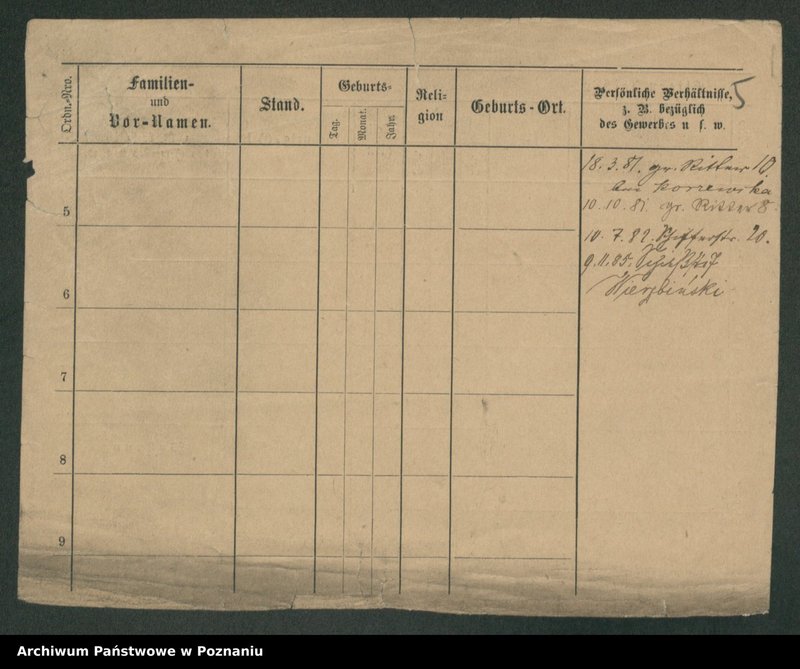 5
Ordn.-Nro.
Familien-
und
Vor-Namen.
Stand.
Geburts-
Tag.
Monat.
Jahr.
Reli-
gion
Geburts-Ort.
Persönliche Verhältnisse,
z. B. bezüglich
des Gewerbes u. s. w.
18. 3. 81. gr. Ritter 10.
bei
10. 10. 81. gr. Ritter 8
5
10. 7. 82. 20.
9. 11. 85.
6
Wierzbiński
7
8
9
Archiwum Państwowe w Poznaniu